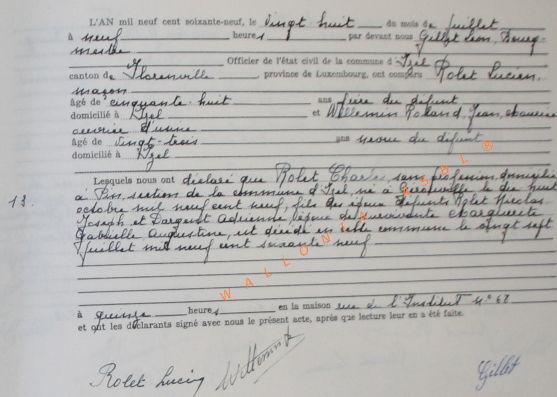 L'AN mil neuf cent soixante-neuf, le vingt huit du mois de juillet
à neuf heures par devant nous Gillet Léon, Bourg-
mestre Officier de l'état civil de la commune d'Izel
canton de Florenville province de Luxembourg, ont comparu Rolet Lucien,
maçon
âgé de cinquante-huit ans frère du défunt
domicilié à Izel et Willemin Roland, Jean,
ouvrier d'usine
âgé de vingt-trois ans neveu du défunt
domicilié à Izel
Lesquels nous ont déclaré que Rolet Charles, sans profession, domicilié
à Pin, section de la commune d'Izel, né à le dix huit
13. octobre mil neuf cent neuf, fils des époux défunts Rolet Nicolas
Joseph et Dargent Adrienne, époux de survivante Marguerite
Gabrielle Augustine, est décédé en cette commune le vingt sept
juillet mil neuf cent soixante neuf
à quinze heures en la maison rue de l'Institut n° 68
et ont les déclarants signé avec nous le présent acte, après que lecture leur en a été faite.
Rolet Lucien Willemin Gillet